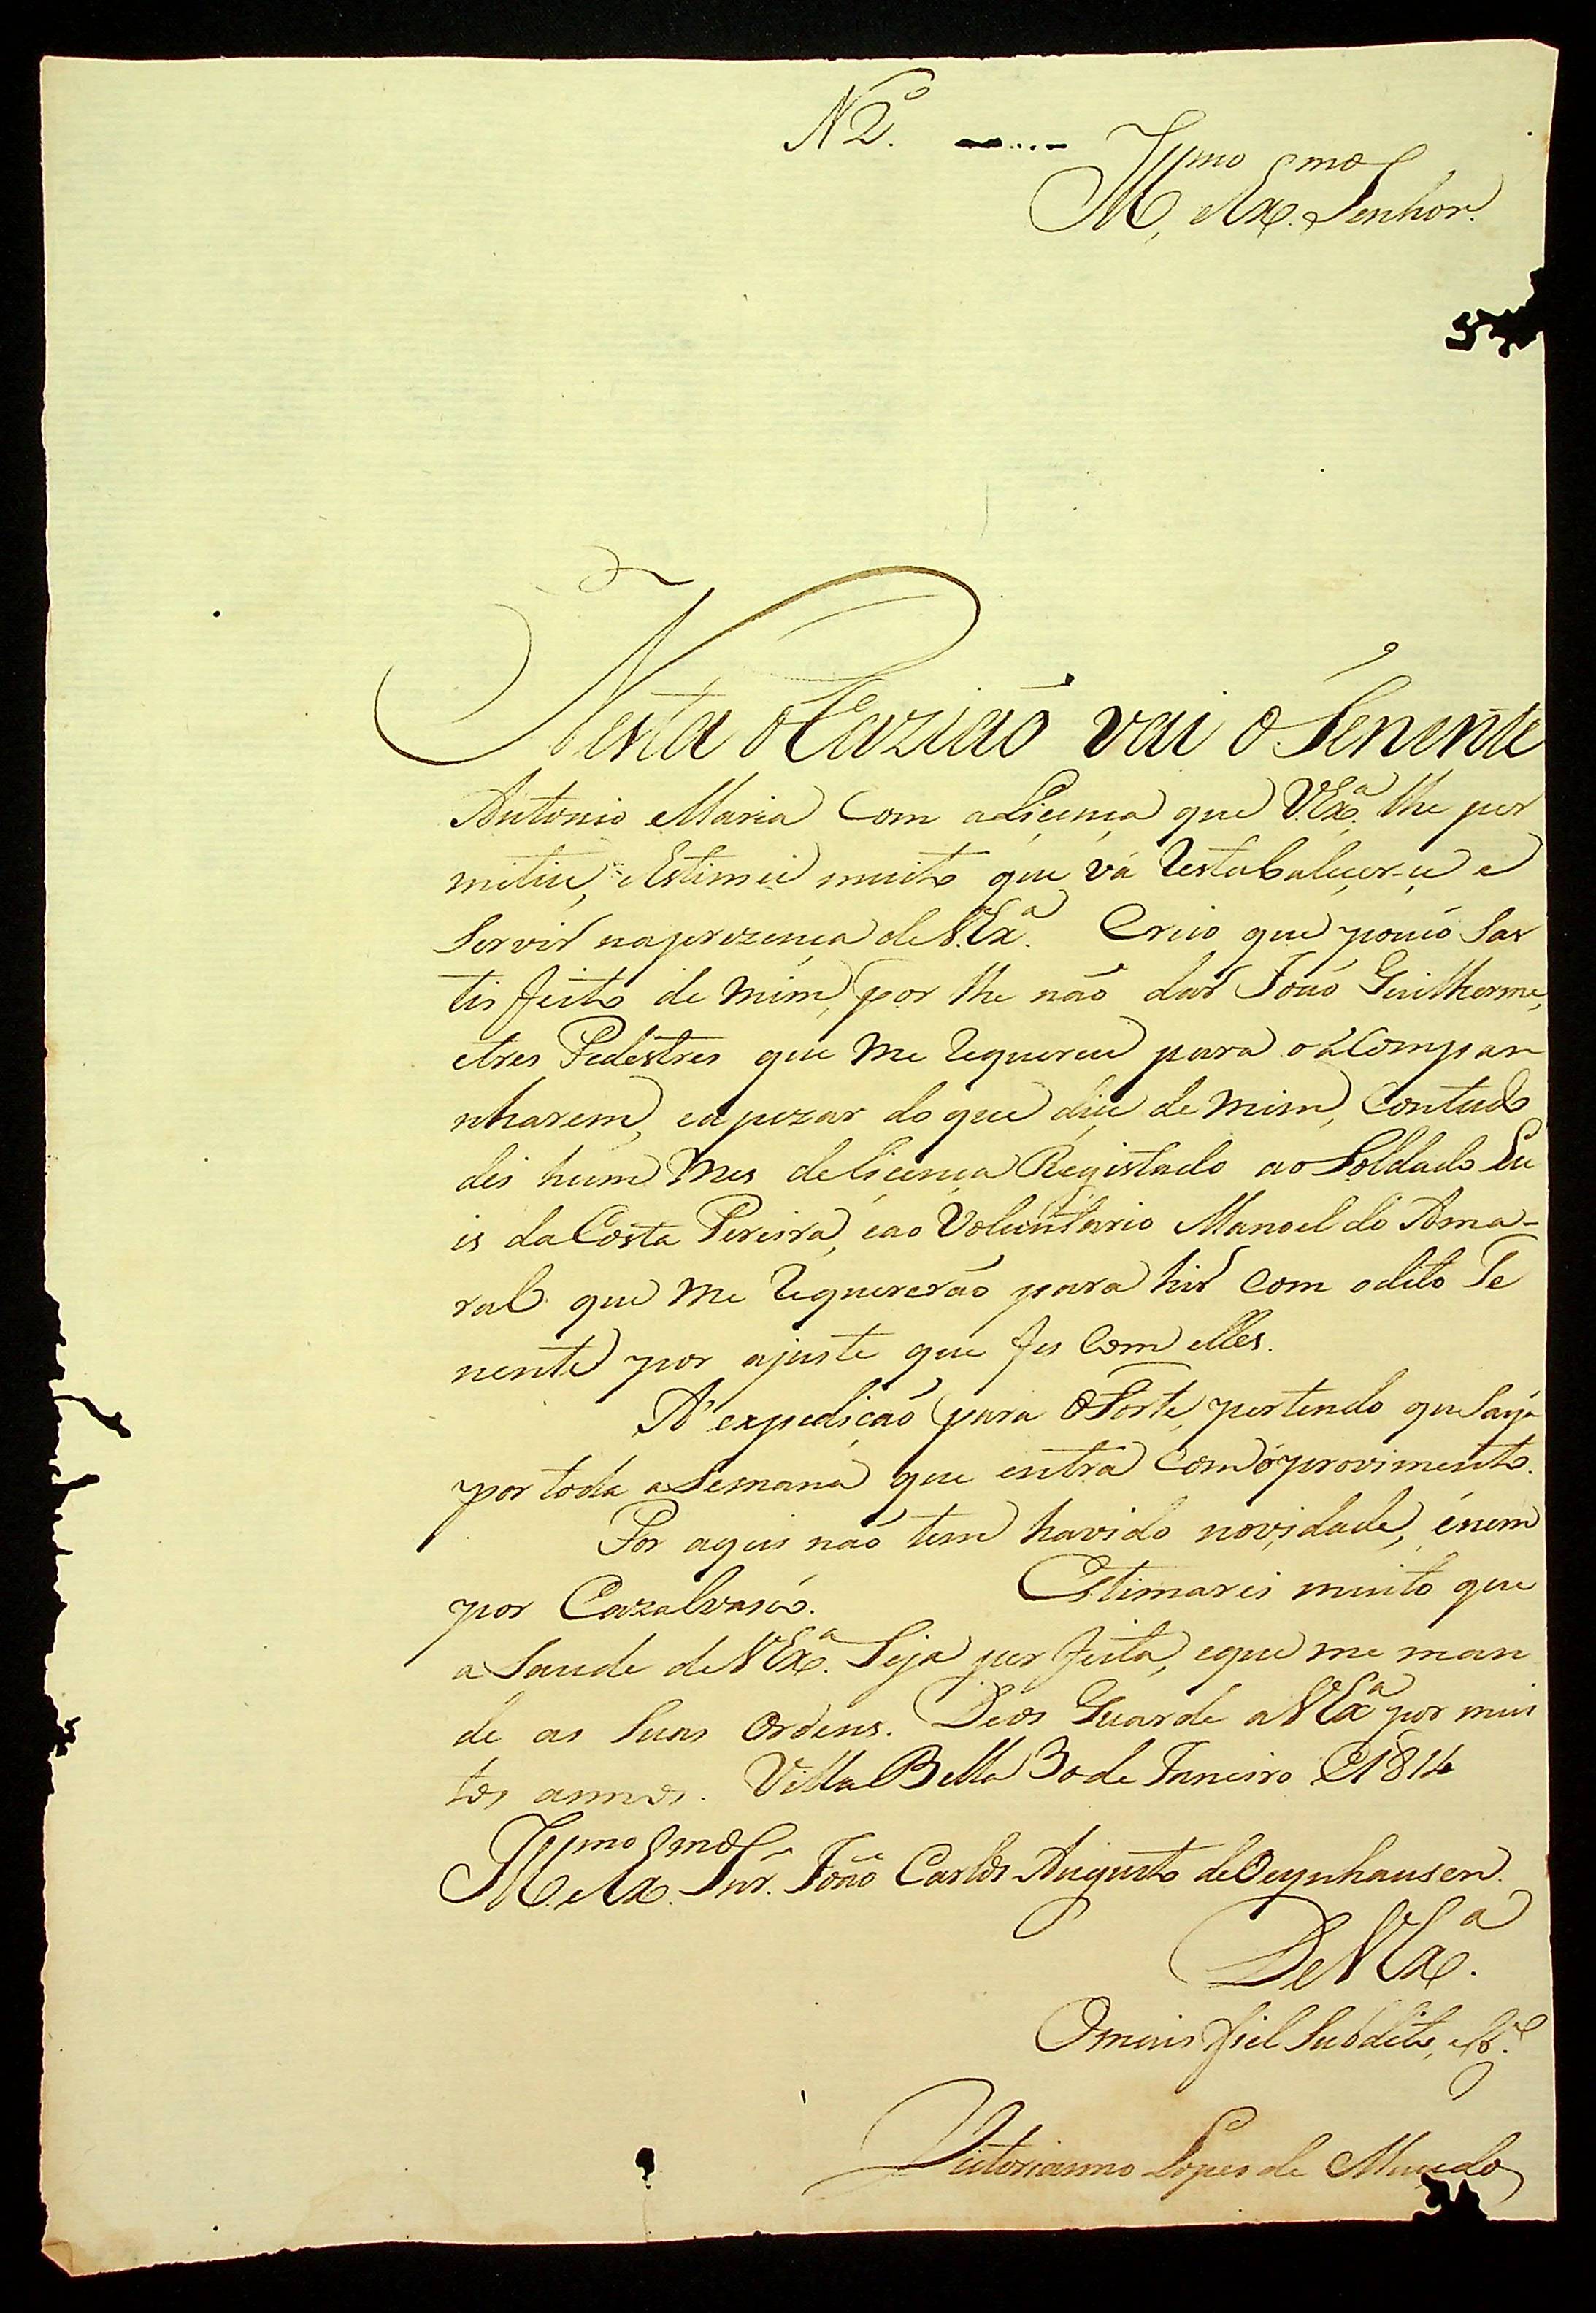 N 2.º
Ill.mo e Ex.mo Senhor.
Nesta occazião vai o Tenente
Antonio Maria com a Licença que V. Ex.ª lhe per
mitiu, Estimei muito que vá restabalecer-se e
Servir na prezença de V. Ex.ª Creio que pouco Sas
tisfeito de mim, por lhe não dar João Guilherme,
e tres Pedestres que me requereu para o aCompa
nharem, e apezar do que diçe de mim, Contudo
dei hum Mes de licença Registado ao Soldado Lu
is da Costa Pereira, e ao Voluntario Manoel do Ama-
ral que me requererão para hir com o dito Te
nente por ajuste que fes com elles.
A expedição para o Forte, pertendo que Saya
por toda a Semana que entra com o provimento.
Por aqui não tem havido novidade, e nem
por Cazalvasco. Estimarei muito que
a Saude de V. Ex.ª Seja perfeita, e que me man
de as Suas Ordens. Deos Guarde a V. Ex.ª por mui
tos annos. Villa Bella 30 de Janeiro de 1814
Ill.mo e Ex.mo Snr. João Carlos Augusto de Oeynhausen.
De V. Ex.ª
O mais fiel Subdito,
Victorianno Lopes de Macedo